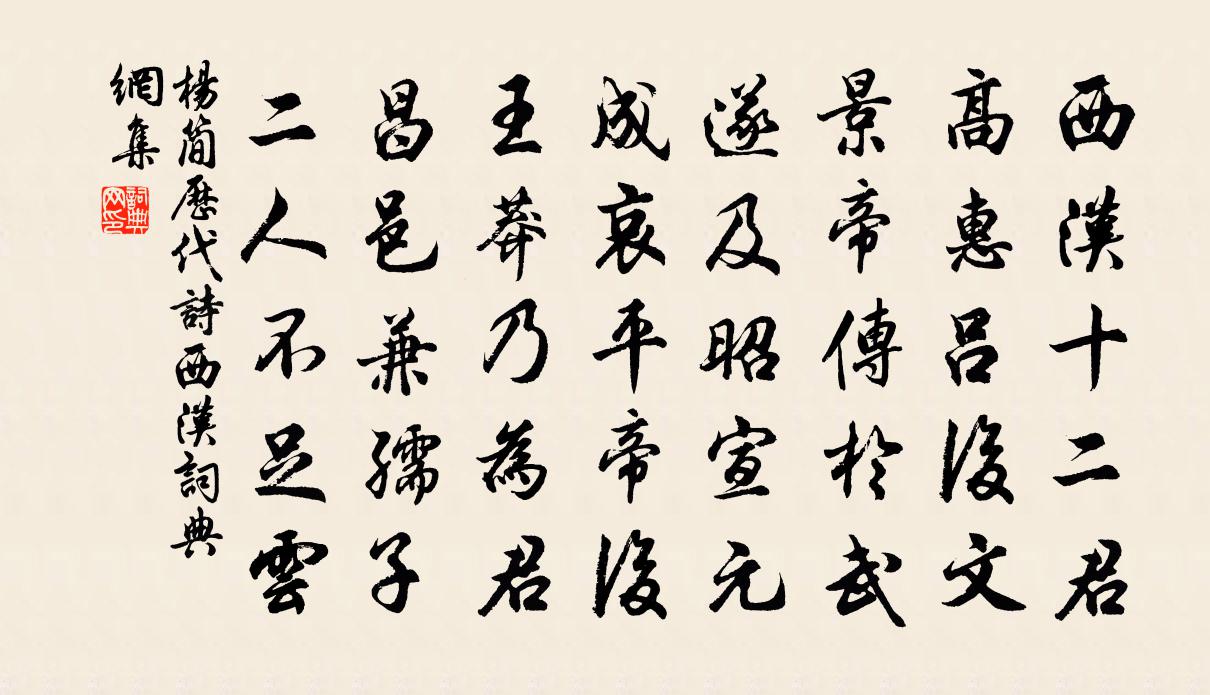 西漢十二君
高惠呂後文
景帝傳於武
遂及昭宣元
成哀平帝後
王莽乃為君
昌邑兼孺子
二人不足雲
楊簡歷代詩西漢詞典
網集
詞典
网印